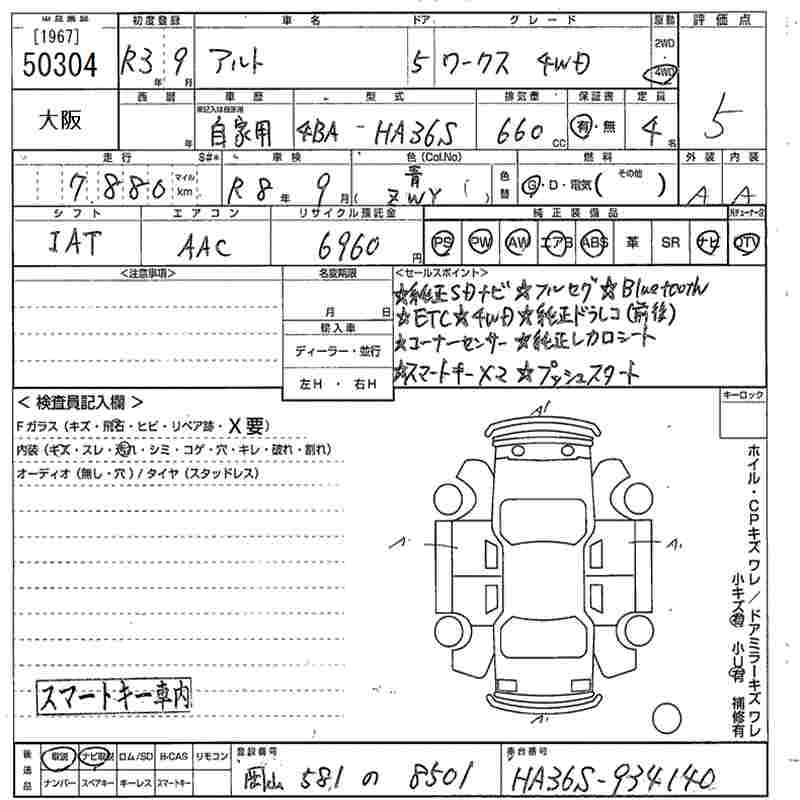 [1967]
50304
大阪
初度登録 車名 ドア グレード 駆動 評価点
R3年 9月 アルト 5 ワークス 4WD 2WD 4WD 5
西暦 車歴 型式 排気量 保証書 定員
年 自家用 4BA - HA36S 660cc 有・無 4名
走行 S#* 車検 色(Col.No) 燃料 外装 内装
7,880 マイル km R8年 9月 青 ZWY ( ) 色替 G・D・電気( その他 ) A A
シフト エアコン リサイクル預託金 純正装備品
IAT AAC 6960円 PS PW AW エアB ABS 革 SR ナビ (TV)
<注意事項> 名変期限 <セールスポイント>
月 日
輸入車
ディーラー・並行
左H ・ 右H
☆純正SDナビ☆フルセグ☆Bluetooth
☆ETC☆4WD☆純正ドラレコ(前後)
☆コーナーセンサー☆純正レカロシート
☆スマートキーX2 ☆プッシュスタート
< 検査員記入欄 > キーロック
Fガラス(キズ・飛石・ヒビ・リペア跡・X要)
内装(キズ・スレ・汚れ・シミ・コゲ・穴・キレ・破れ・割れ)
オーディオ(無し・穴)/タイヤ(スタッドレス)
A1
A1
A1
A1
ホイル・CPキズ ワレ/ドアミラーキズ ワレ
小キズ有 小U有 補修有
スマートキー車内
後送品 取説 ナビ取説 ロム/SD B-CAS リモコン
ナンバー スペアキー キーレス スマートキー
登録番号 岡山 581 の 8501
車台番号 HA36S-934140